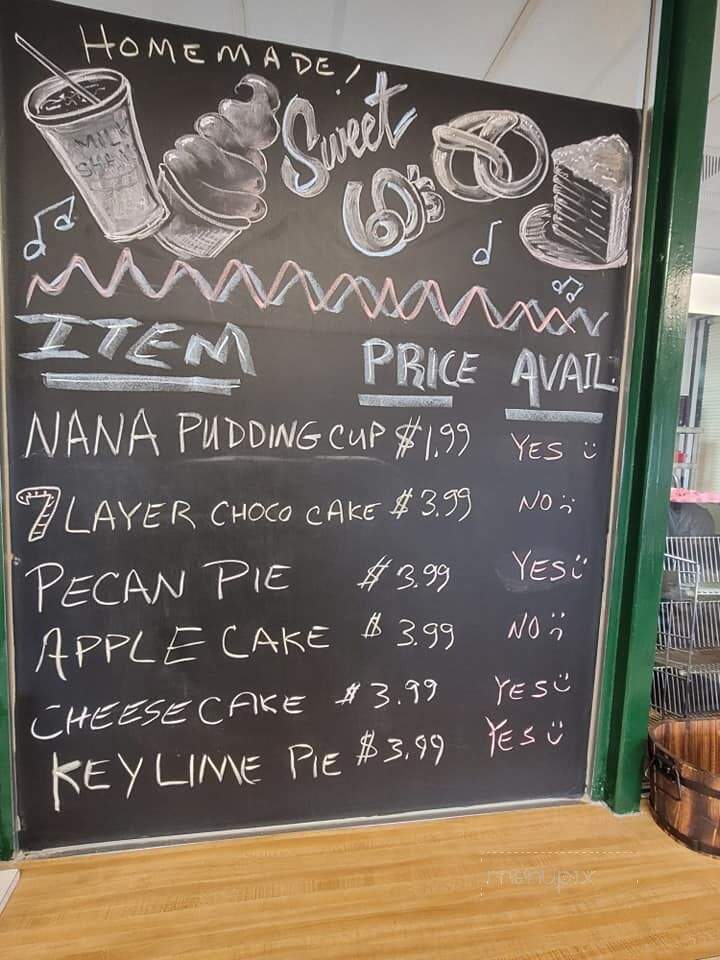 HOMEMADE!
MILK
SHAKE
Sweet
6's
ITEM PRICE AVAIL.
NANA PUDDING CUP $1.99 YES
7 LAYER CHOCO CAKE $3.99 NO
PECAN PIE $3.99 YES
APPLE CAKE $3.99 NO
CHEESECAKE $3.99 YES
KEY LIME PIE $3.99 YES
menupix